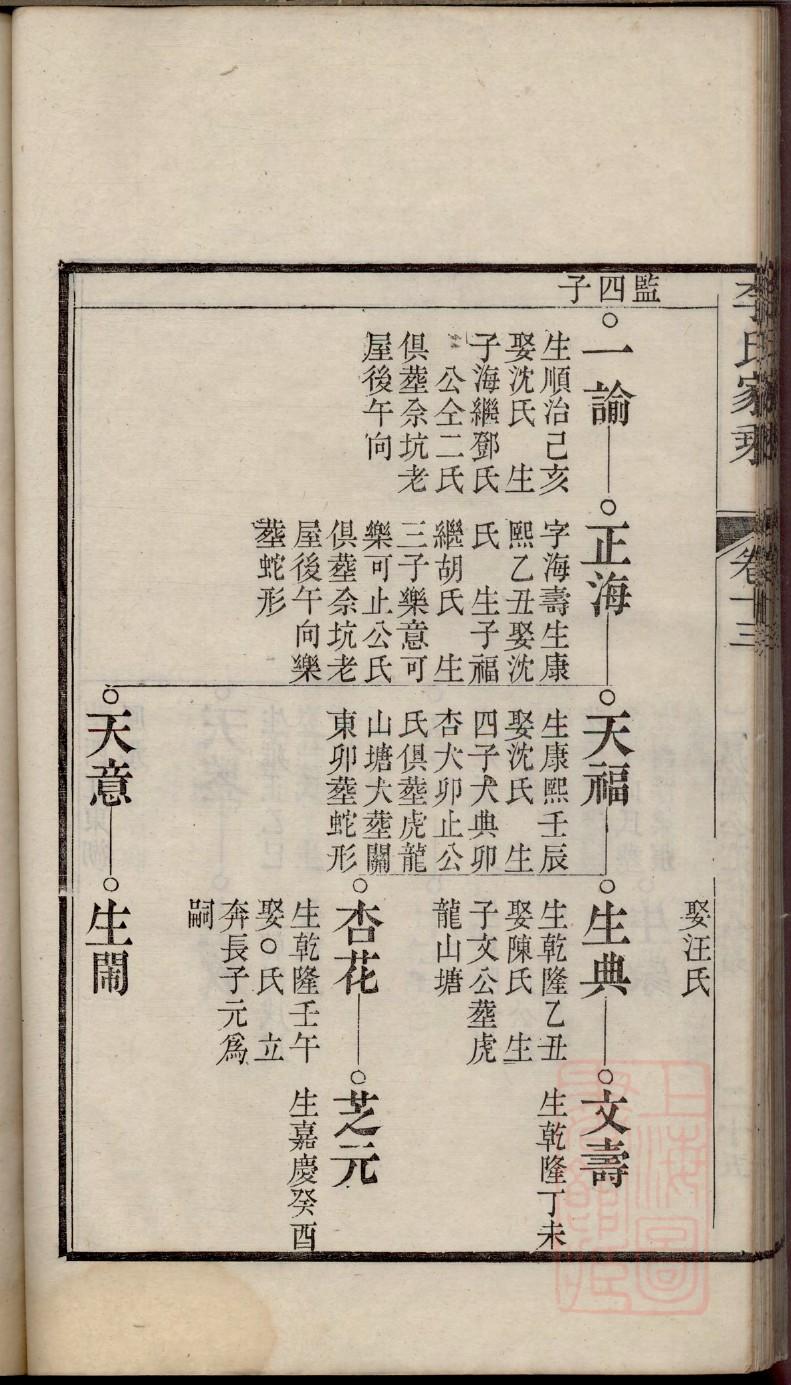 李氏家乘
卷十三
娶汪氏
監四子
一諭
生順治己亥
娶沈氏 生
子海繼鄧氏
公仝二氏
俱塟尒坑老
屋後午向
正海
字海壽生康
熙乙丑娶沈
氏 生子福
繼胡氏 生
三子樂意可
樂可止公氏
俱塟尒坑老
屋後午向樂
塟蛇形
天福
生康熙壬辰
娶沈氏 生
四子犬典卯
杏犬卯止公
氏俱塟虎龍
山塘犬塟關
東卯塟蛇形
生典
生乾隆乙丑
娶陳氏 生
子文公塟虎
龍山塘
文壽
生乾隆丁未
杏花
生乾隆壬午
娶○氏 立
奔長子元爲
嗣
芝元
生嘉慶癸酉
天意
生閙